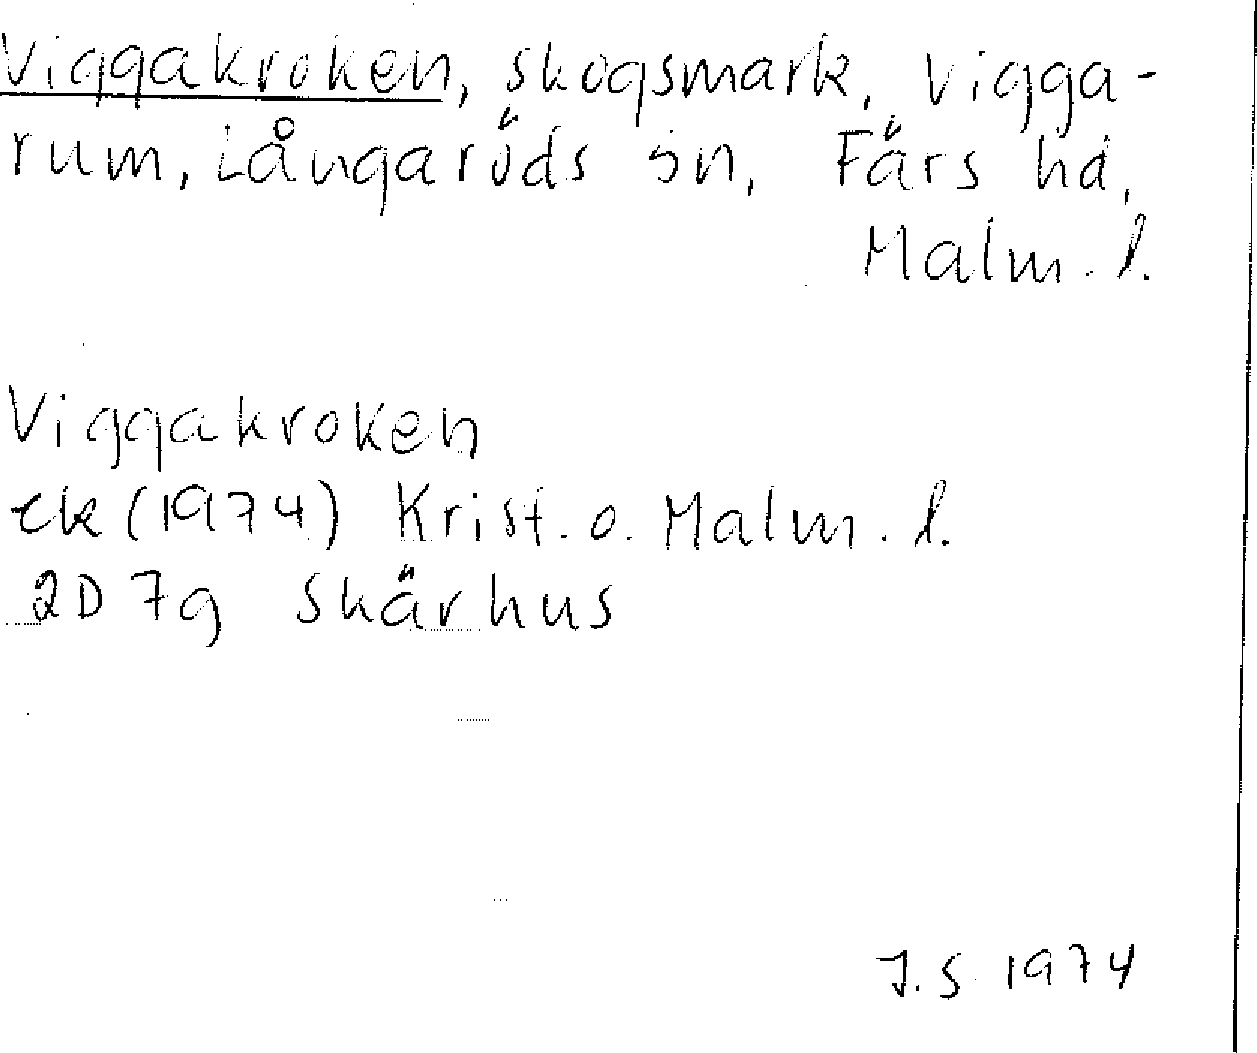 Viggakroken, skogsmark, Vigga-
rum, Långaröds sn, Färs hd,
Malm. l.
Viggakroken
ek (1974) Krist. o. Malm. l.
2D 7g Skärhus
J.S 1974